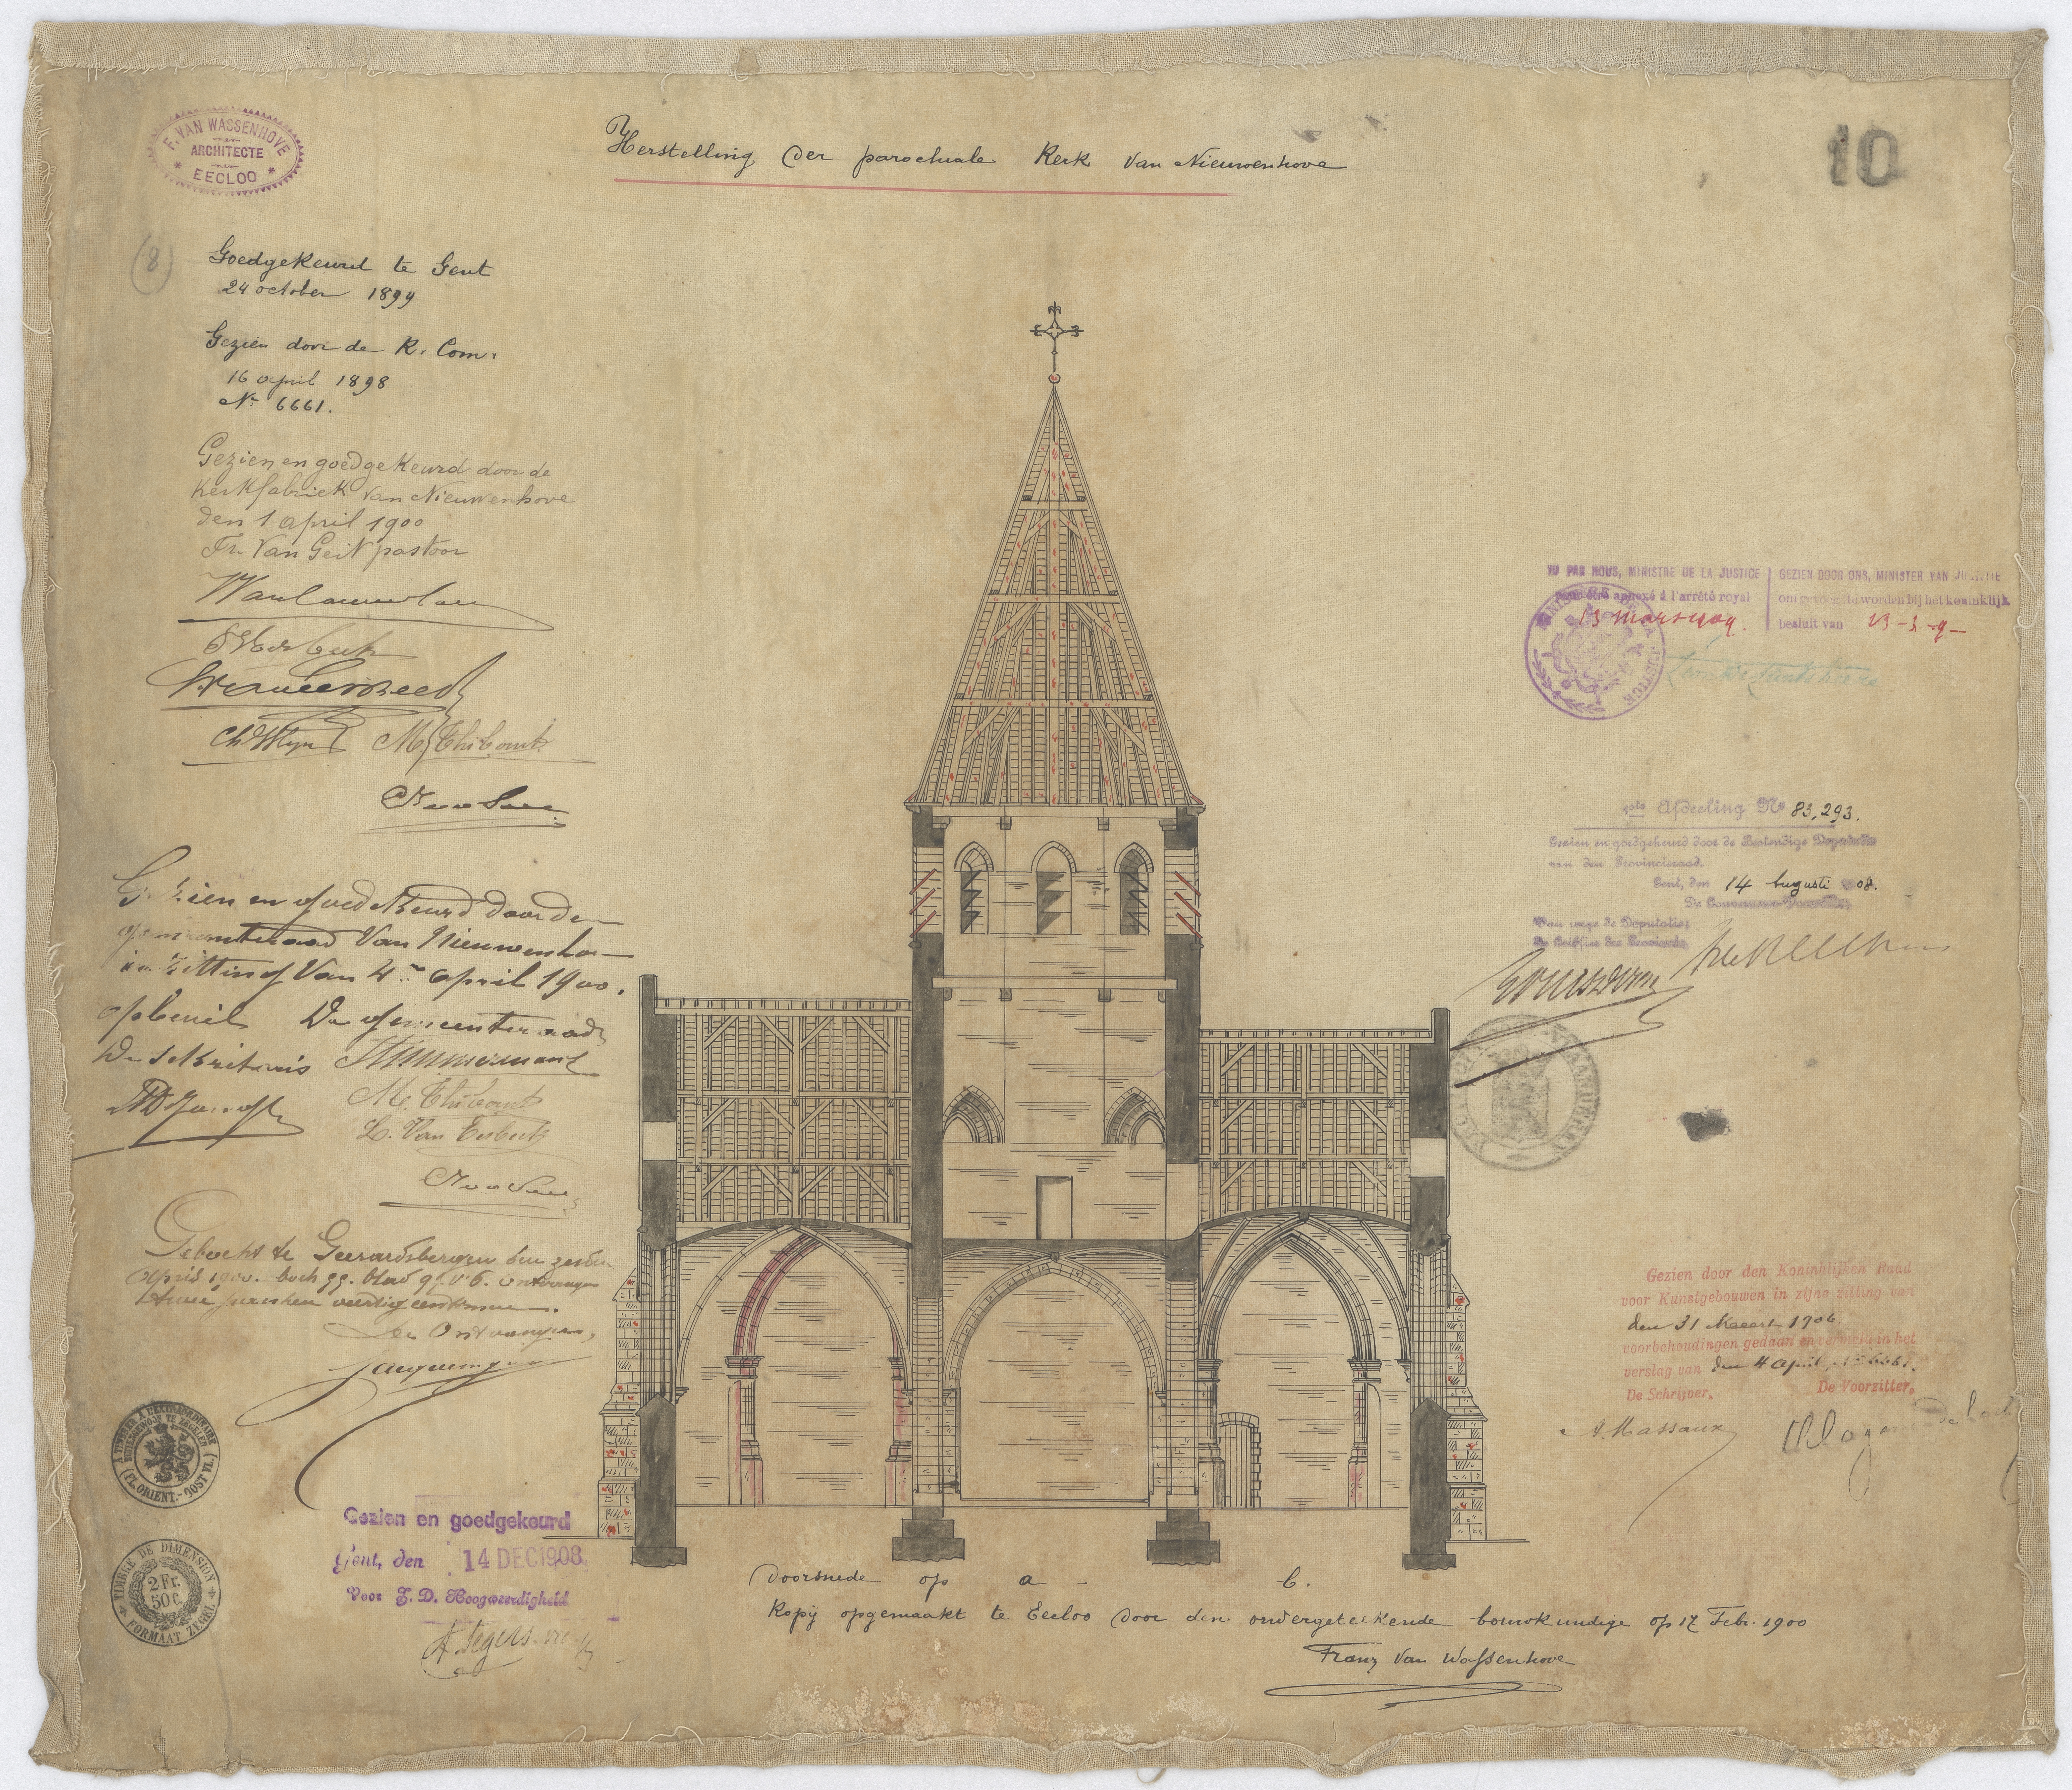 F. VAN WASSENHOVE
ARCHITECTE
* EECLOO *
Herstelling der parochiale Kerk van Nieuwenhove
10
(8)
Goedgekeurd te Gent
24 october 1899
Gezien door de K. Com.
16 april 1898
Nr 6661.
Gezien en goedgekeurd door de
Kerkfabriek van Nieuwenhove
den 1 April 1900
Fr. Van Geit pastoor
M. Thibaut
Gezien en goedgekeurd door de
gemeenteraad van Nieuwenho
in zitting van 4en April 1900.
op bevel De gemeenteraad
De Sekretaris Timmermans
M. Thibaut
Geboekt te Geerardsbergen den zesden
April 1900. boek 99. blad 97. v 6. ontvangen
twee franken veertig centimen.
De Ontvanger,
A TIMBRER A L'EXTRAORDINAIRE
BUITENGEWOON TE ZEGELEN
(FL. ORIENT.-OOST VL.)
TIMBRE DE DIMENSION
2 Fr.
50 C.
FORMAAT ZEGEL
Gezien en goedgekeurd
Gent, den 14 DEC 1908
Voor Z. D. Hoogweerdigheid
VU PAR NOUS, MINISTRE DE LA JUSTICE
pour être annexé à l'arrêté royal
13 mars 1909.
GEZIEN DOOR ONS, MINISTER VAN JUSTITIE
om gevoegd te worden bij het koninklijk
besluit van 13-3-9-
Afdeeling No 83,293.
Gezien en goedgekeurd door de Bestendige Deputatie
van den Provincieraad.
Gent, den 14 Augusti 1908.
De Gouverneur-Voorzitter,
Van wege de Deputatie:
De Griffier der Provincie,
Gezien door den Koninklijken Raad
voor Kunstgebouwen in zijne zitting van
den 31 Maart 1906
voorbehoudingen gedaan en vermeld in het
verslag van den 4 April, No 6661.
De Schrijver, De Voorzitter,
A. Massaux Lagasse de Locht
Doorsnede op a - b.
Kopij opgemaakt te Eecloo door den ondergeteekende bouwkundige op 17 Febr. 1900
Franz Van Wassenhove